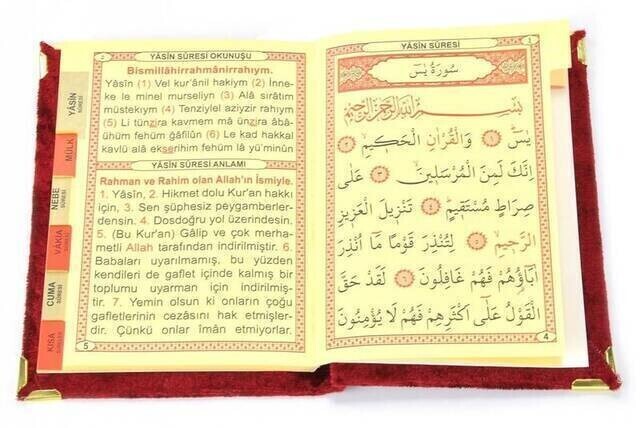 YÂSÎN SÛRESİ OKUNUŞU
Bismillâhirrahmânirrahıym.
Yâsîn (1) Vel kur'ânil hakiym (2) İnne-
ke le minel murseliyn (3) Alâ sırâtim
müstekıym (4) Tenziylel aziyzir rahıym
(5) Li tünzira kavmem mâ ünzira âbâ-
ühüm fehüm ğâfilûn (6) Le kad hakkal
kavlü alâ ekserihim fehüm lâ yü'minûn
YÂSÎN SÛRESİ ANLAMI
Rahman ve Rahim olan Allah'ın İsmiyle.
1. Yâsîn, 2. Hikmet dolu Kur'an hakkı
için, 3. Sen şüphesiz peygamberler-
densin. 4. Dosdoğru yol üzerindesin.
5. (Bu Kur'an) Gâlip ve çok merha-
metli Allah tarafından indirilmiştir. 6.
Babaları uyarılmamış, bu yüzden
kendileri de gaflet içinde kalmış bir
toplumu uyarman için indirilmiş-
tir. 7. Yemin olsun ki onların çoğu
gafletlerinin cezasını hak etmişler-
dir. Çünkü onlar îmân etmiyorlar.
5
YÂSİN
SÛRESİ
MÜLK
NEBE
SÛRESİ
VAKIA
CUMA
SÛRESİ
KISA
YÂSÎN SÛRESİ
سُورَةُ يٰسٓ
بِسْمِ اللهِ الرَّحْمٰنِ الرَّحِيمِ
يٰسٓ ﴿١﴾ وَالْقُرْاٰنِ الْحَكِيمِ ﴿٢﴾
اِنَّكَ لَمِنَ الْمُرْسَلِينَ ﴿٣﴾ عَلٰى
صِرَاطٍ مُسْتَقِيمٍ ﴿٤﴾ تَنْزِيلَ الْعَزِيزِ
الرَّحِيمِ ﴿٥﴾ لِتُنْذِرَ قَوْمًا مَٓا اُنْذِرَ
اٰبَٓاؤُهُمْ فَهُمْ غَافِلُونَ ﴿٦﴾ لَقَدْ حَقَّ
الْقَوْلُ عَلٰٓى اَكْثَرِهِمْ فَهُمْ لَا يُؤْمِنُونَ
4